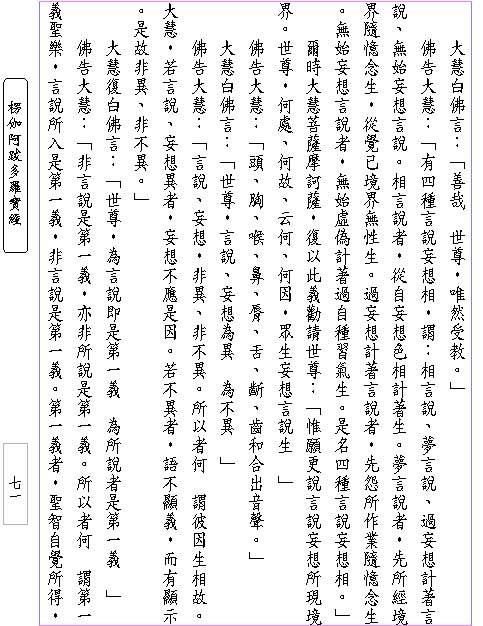 大慧白佛言：「善哉　世尊，唯然受教。」
佛告大慧：「有四種言說妄想相，謂：相言說、夢言說、過妄想計著言
說、無始妄想言說。相言說者，從自妄想色相計著生。夢言說者，先所經境
界隨憶念生，從覺已境界無性生。過妄想計著言說者，先怨所作業隨憶念生
。無始妄想言說者，無始虛偽計著過自種習氣生。是名四種言說妄想相。」
爾時大慧菩薩摩訶薩，復以此義勸請世尊：「惟願更說言說妄想所現境
界。世尊，何處、何故、云何、何因，眾生妄想言說生　」
佛告大慧：「頭、胸、喉、鼻、脣、舌、齗、齒和合出音聲。」
大慧白佛言：「世尊，言說、妄想為異　為不異　」
佛告大慧：「言說、妄想，非異、非不異。所以者何　謂彼因生相故。
大慧，若言說、妄想異者，妄想不應是因。若不異者，語不顯義，而有顯示
。是故非異、非不異。」
大慧復白佛言：「世尊，為言說即是第一義　為所說者是第一義　」
佛告大慧：「非言說是第一義，亦非所說是第一義。所以者何　謂第一
義聖樂，言說所入是第一義，非言說是第一義。第一義者，聖智自覺所得，
楞伽阿跋多羅寶經
七一